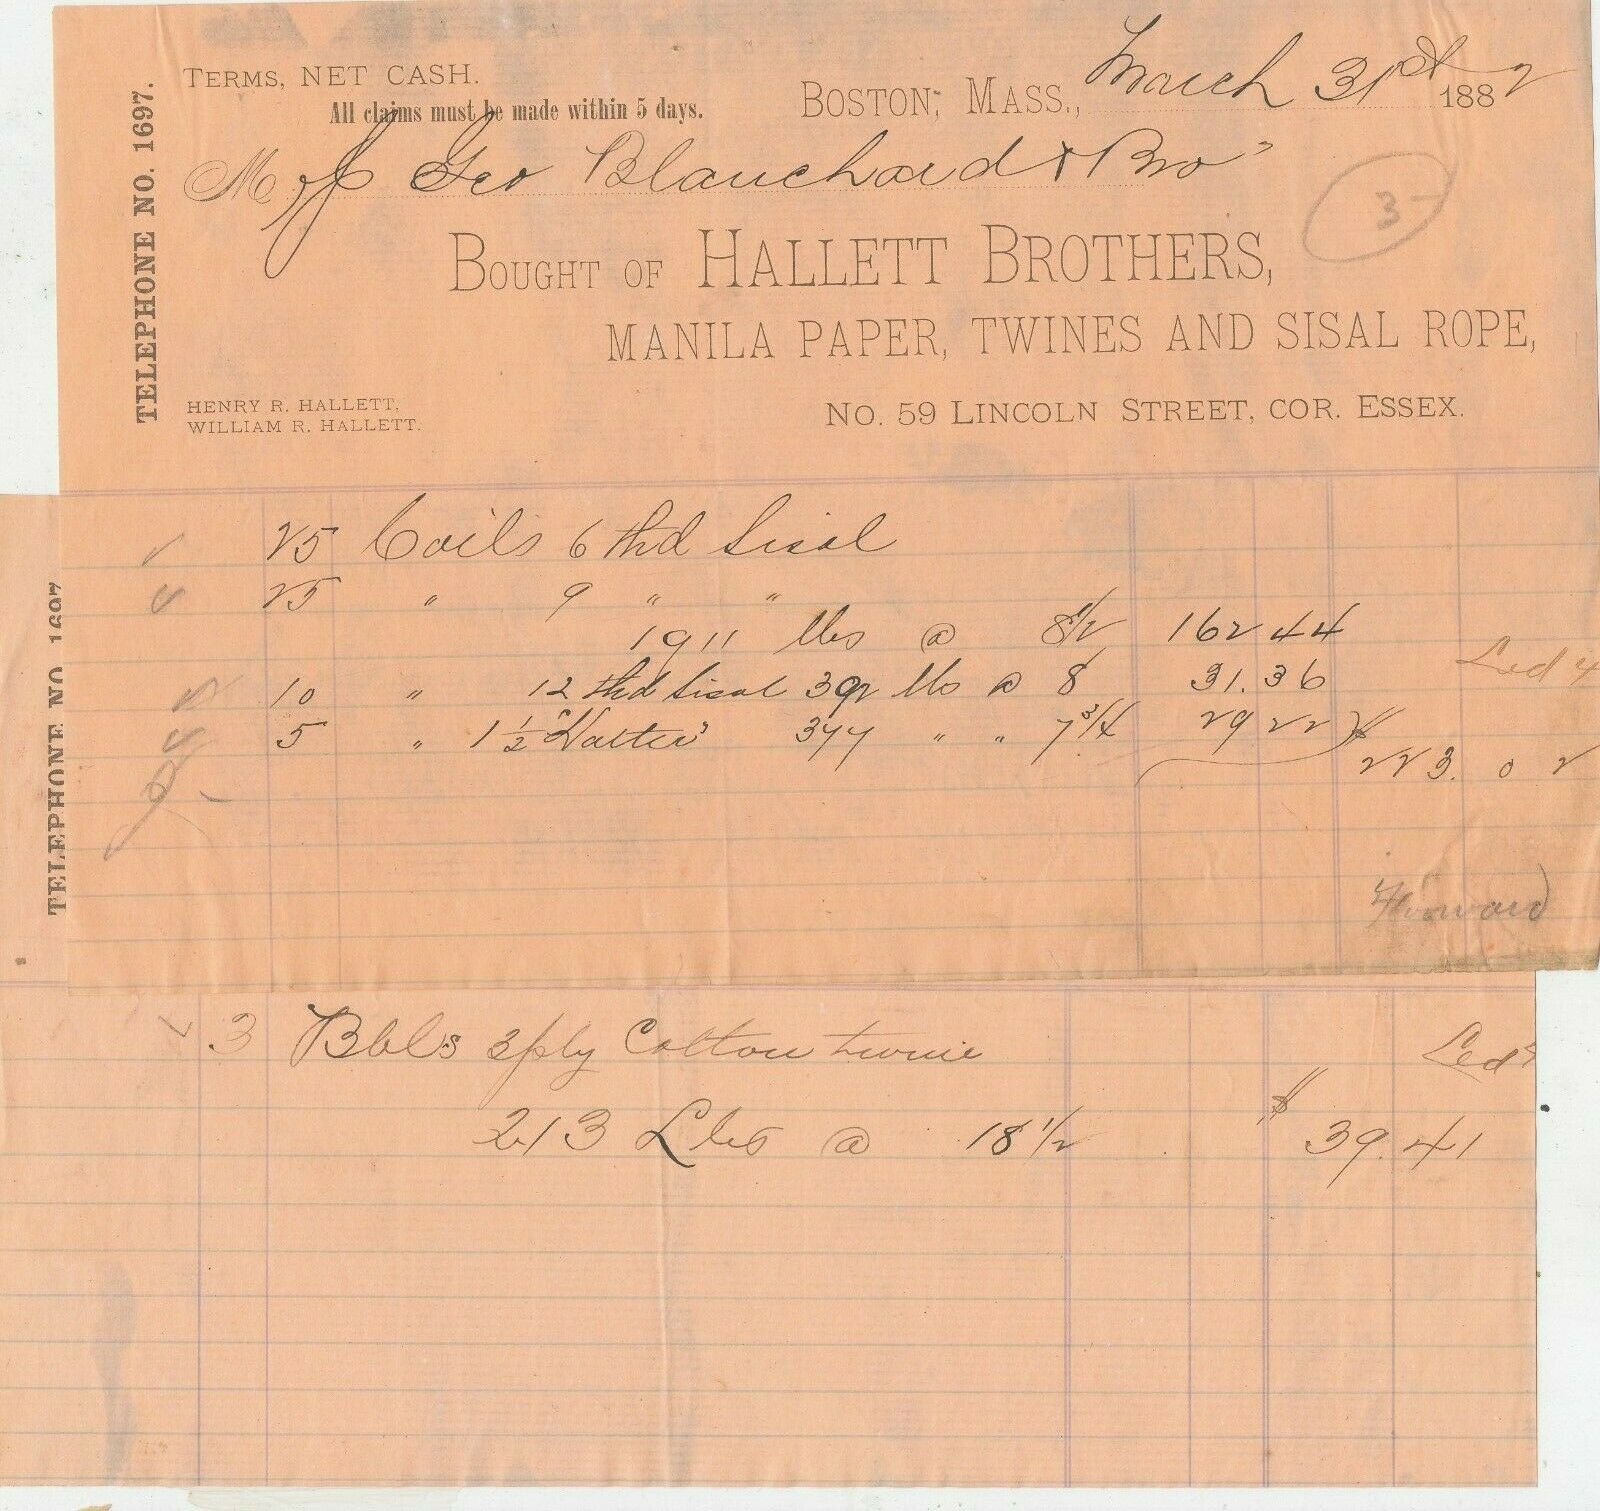 TERMS, NET CASH.
All claims must be made within 5 days.
BOSTON, MASS., March 31st 1882
TELEPHONE NO. 1697.
M Geo Blanchard & Bro
3-
BOUGHT OF HALLETT BROTHERS,
MANILA PAPER, TWINES AND SISAL ROPE,
HENRY R. HALLETT.
WILLIAM R. HALLETT.
NO. 59 LINCOLN STREET, COR. ESSEX.
25 Coils 6 thd Sisal
25 " 9 " "
1911 lbs @ 8 1/2 162 44
Led 4
10 " 12 thd Sisal 392 lbs @ 8 31.36
5 " 1 1/2 "Halter" 377 " " 7 3/4 29 22 $
223.02
TELEPHONE NO. 1697
Forward
3 Bbls 3 ply Cotton twine Led 4
213 Lbs @ 18 1/2 $ 39.41